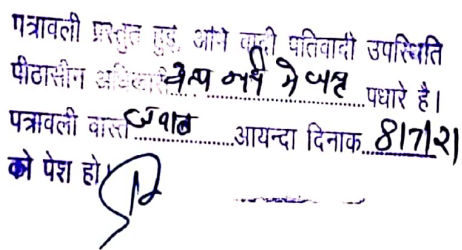 पत्रावली प्रस्तुत हुई, आने वादी पतिवादी उपस्थिति
पीठासीन अधिकारी अन्य कार्य में व्यस्त पधारे है।
पत्रावली वास्ते जवाब आयन्दा दिनाक 8/7/21
को पेश हो।